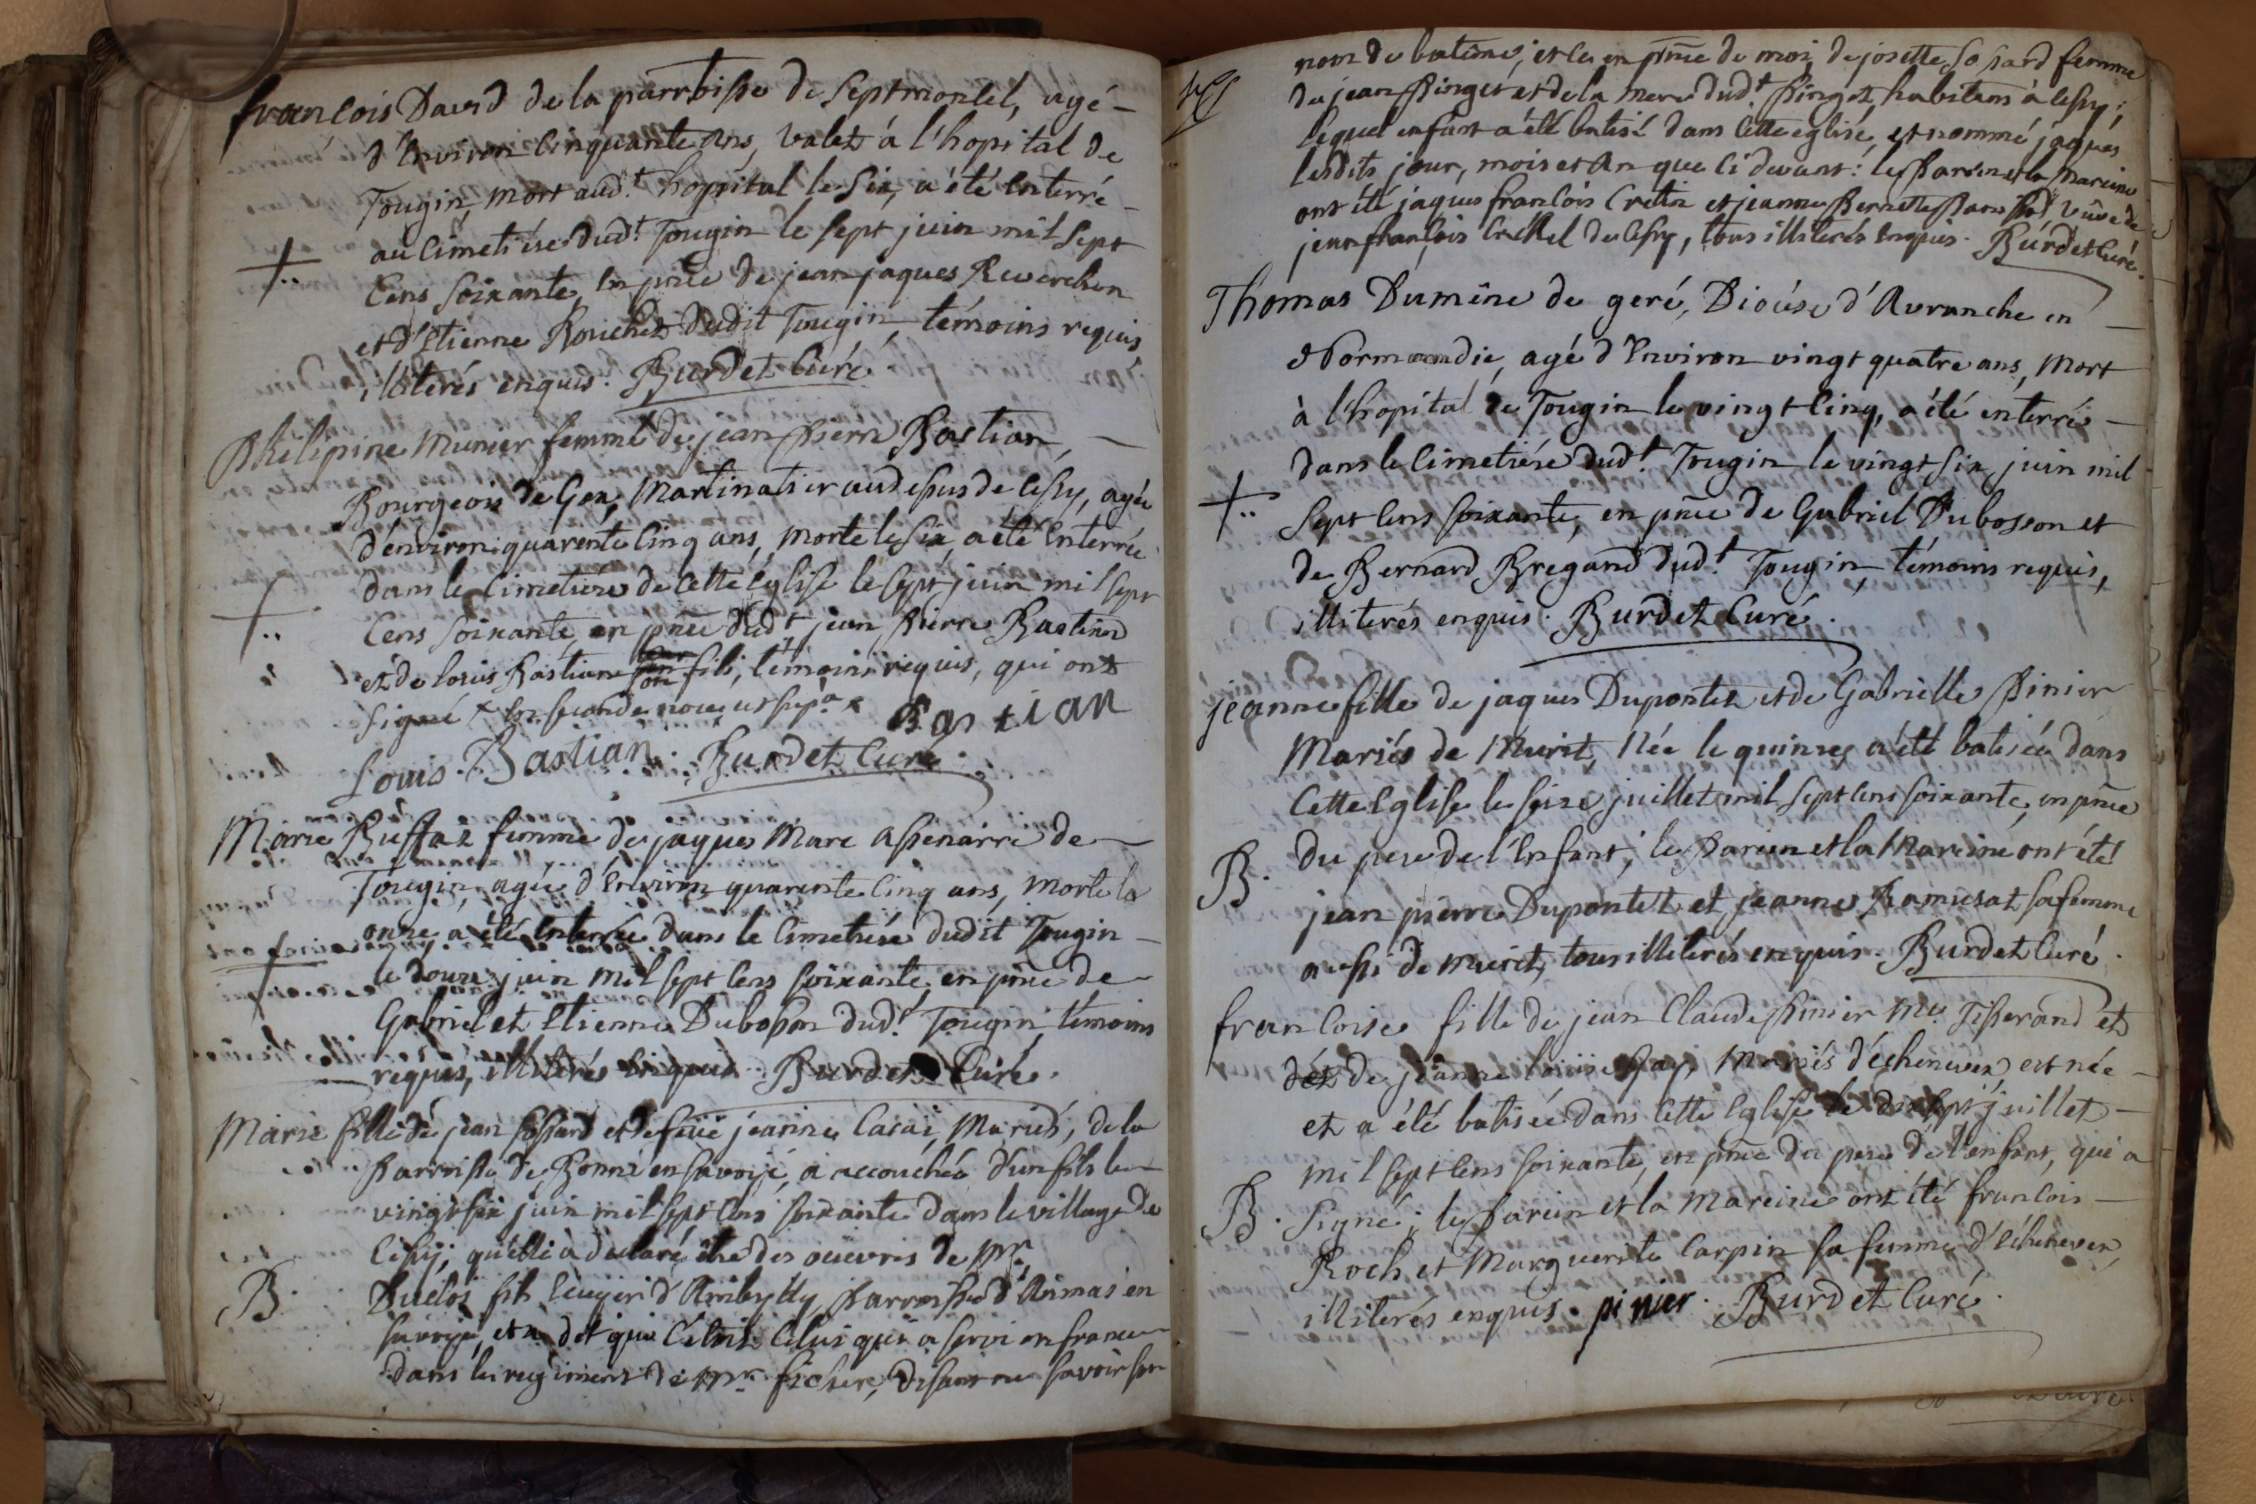 francois David de la parroisse de Septmoncel, agé
d'Environ Cinquante ans, valet à l'hopital de
Tougin, mort aud.t hopital le Six, a été Enterré
au Cimetiére dud.t Tougin le sept juin mil sept
Cens Soixante, en pnce de jean jaques Reverchon
et d'Etienne Rouchet dudit Tougin, témoins requis
illiterés enquis. Burdet Curé
Philipine Munier femme de jean pierre Bastian,
Bourgeois de Gex, Martinatier audessus de Cessy, agée
d'environ quarente Cinq ans, morte le Six a été Enterrée
dans le Cimetiére de Cette Eglise le Sept juin mil sept
Cens Soixante, en pnce dud.t jean Pierre Bastian
et de louis Bastian fils, témoins requis, qui ont
Signé x En seconde noces x Bastian
Louis Bastian. Burdet Curé.
Marie Ruffaz femme de jaques Marc de
Tougin, agée d'Environ quarente Cinq ans, morte le
onze a été Enterrée dans le Cimetiére dudit Tougin
le douze juin mil sept Cens Soixante, en pnce de
Gabriel et Etienne Dubosson dud.t Tougin, témoins
requis, illiterés Enquis. Burdet Curé.
Marie fille de jean fossard et de feüe jeanne Mariés, de la
Parroisse de Bonne en Savoyé, a accouchée d'un fils le
vingt six juin mil sept Cens Soixante dans le village de
Cessy, qu'elle à declaré être des oeuvres de mr
Duclos fils d'Ambylly Parroisse d'Annas en
Savoyé, et a dit que C'étoit Celui qui a servi en france
dans le regiment de mr. ficher, disant ne savoir son
nom de batême, et ce en pnce de moi, de josette fossard femme
de jean Pinget et de la mere dud.t Pinget, habitans à Cessy;
lequel enfant a été batisé dans Cette eglise, et nommé jaques
lesdits jour, mois et An que Ci devant: le Parein et la Mareine
ont été jaques francois Cretin et jeanne Bernette veuve de
jean francois de Cessy, tous illiterés enquis. Burdet Curé.
Thomas Dumêne de geré, Diocése d'Avranche en
Normandie, agé d'Environ vingt quatre ans, mort
à l'hopital de Tougin le vingt Cinq, a été enterré
dans le Cimetiére dud.t Tougin le vingt Six juin mil
Sept Cens Soixante, en pnce de Gabriel Dubosson et
de Bernard Bregand dud.t Tougin, témoins requis,
illiterés enquis. Burdet Curé.
jeanne fille de jaques Dupontet et de Gabrielle Pinier
Mariés de Murit, Née le quinze, a été batisée dans
Cette Eglise le Seize juillet mil Sept Cens Soixante, en pnce
B. du pere de l'Enfant; le Parein et la Mareine ont été
jean pierre Dupontet et jeanne Ramusat sa femme
aussi de murit, tous illiterés enquis. Burdet Curé.
francoise fille de jean Claude Pinier Me. Tisserand et
de jeanne louise Gay, Mariés d'échenevex est née
et a été batisée dans Cette Eglise le dix Sept juillet
mil sept Cens Soixante, en pnce du pere de l'enfant, qui a
B. Signé; le Parein et la Mareine ont été francois
Roch et Marguerite Carpin sa femme d'Echenevex,
illiterés enquis. pinier. Burdet Curé.